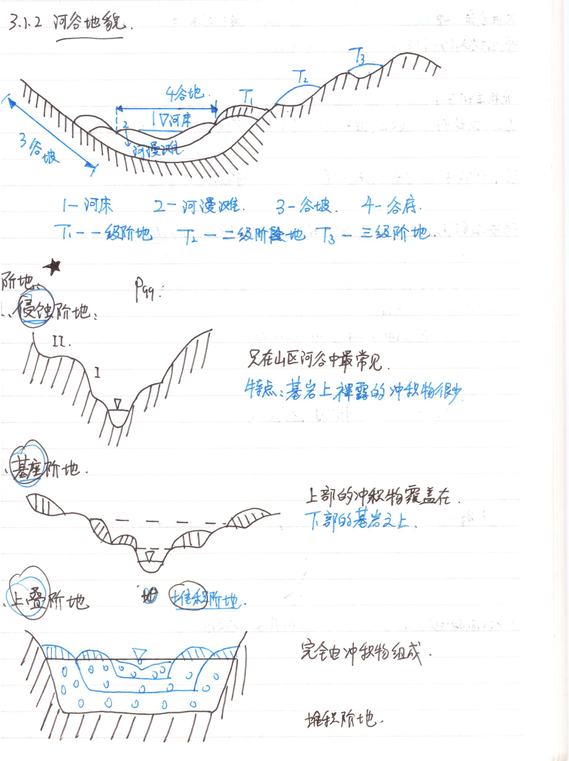 3.1.2 河谷地貌.
T3
T2
T1
4谷地.
1▽河床
2
河漫滩
3谷坡
1-河床 2-河漫滩. 3-谷坡. 4-谷底.
T1-一级阶地 T2-二级阶地 T3-三级阶地.
阶地. ★ P99:
侵蚀阶地:
II.
I
只在山区河谷中最常见.
特点:基岩上裸露的冲积物很少
基座阶地.
上部的冲积物覆盖在
下部的基岩之上.
上叠阶地 堆积阶地.
完全由冲积物组成.
堆积阶地.